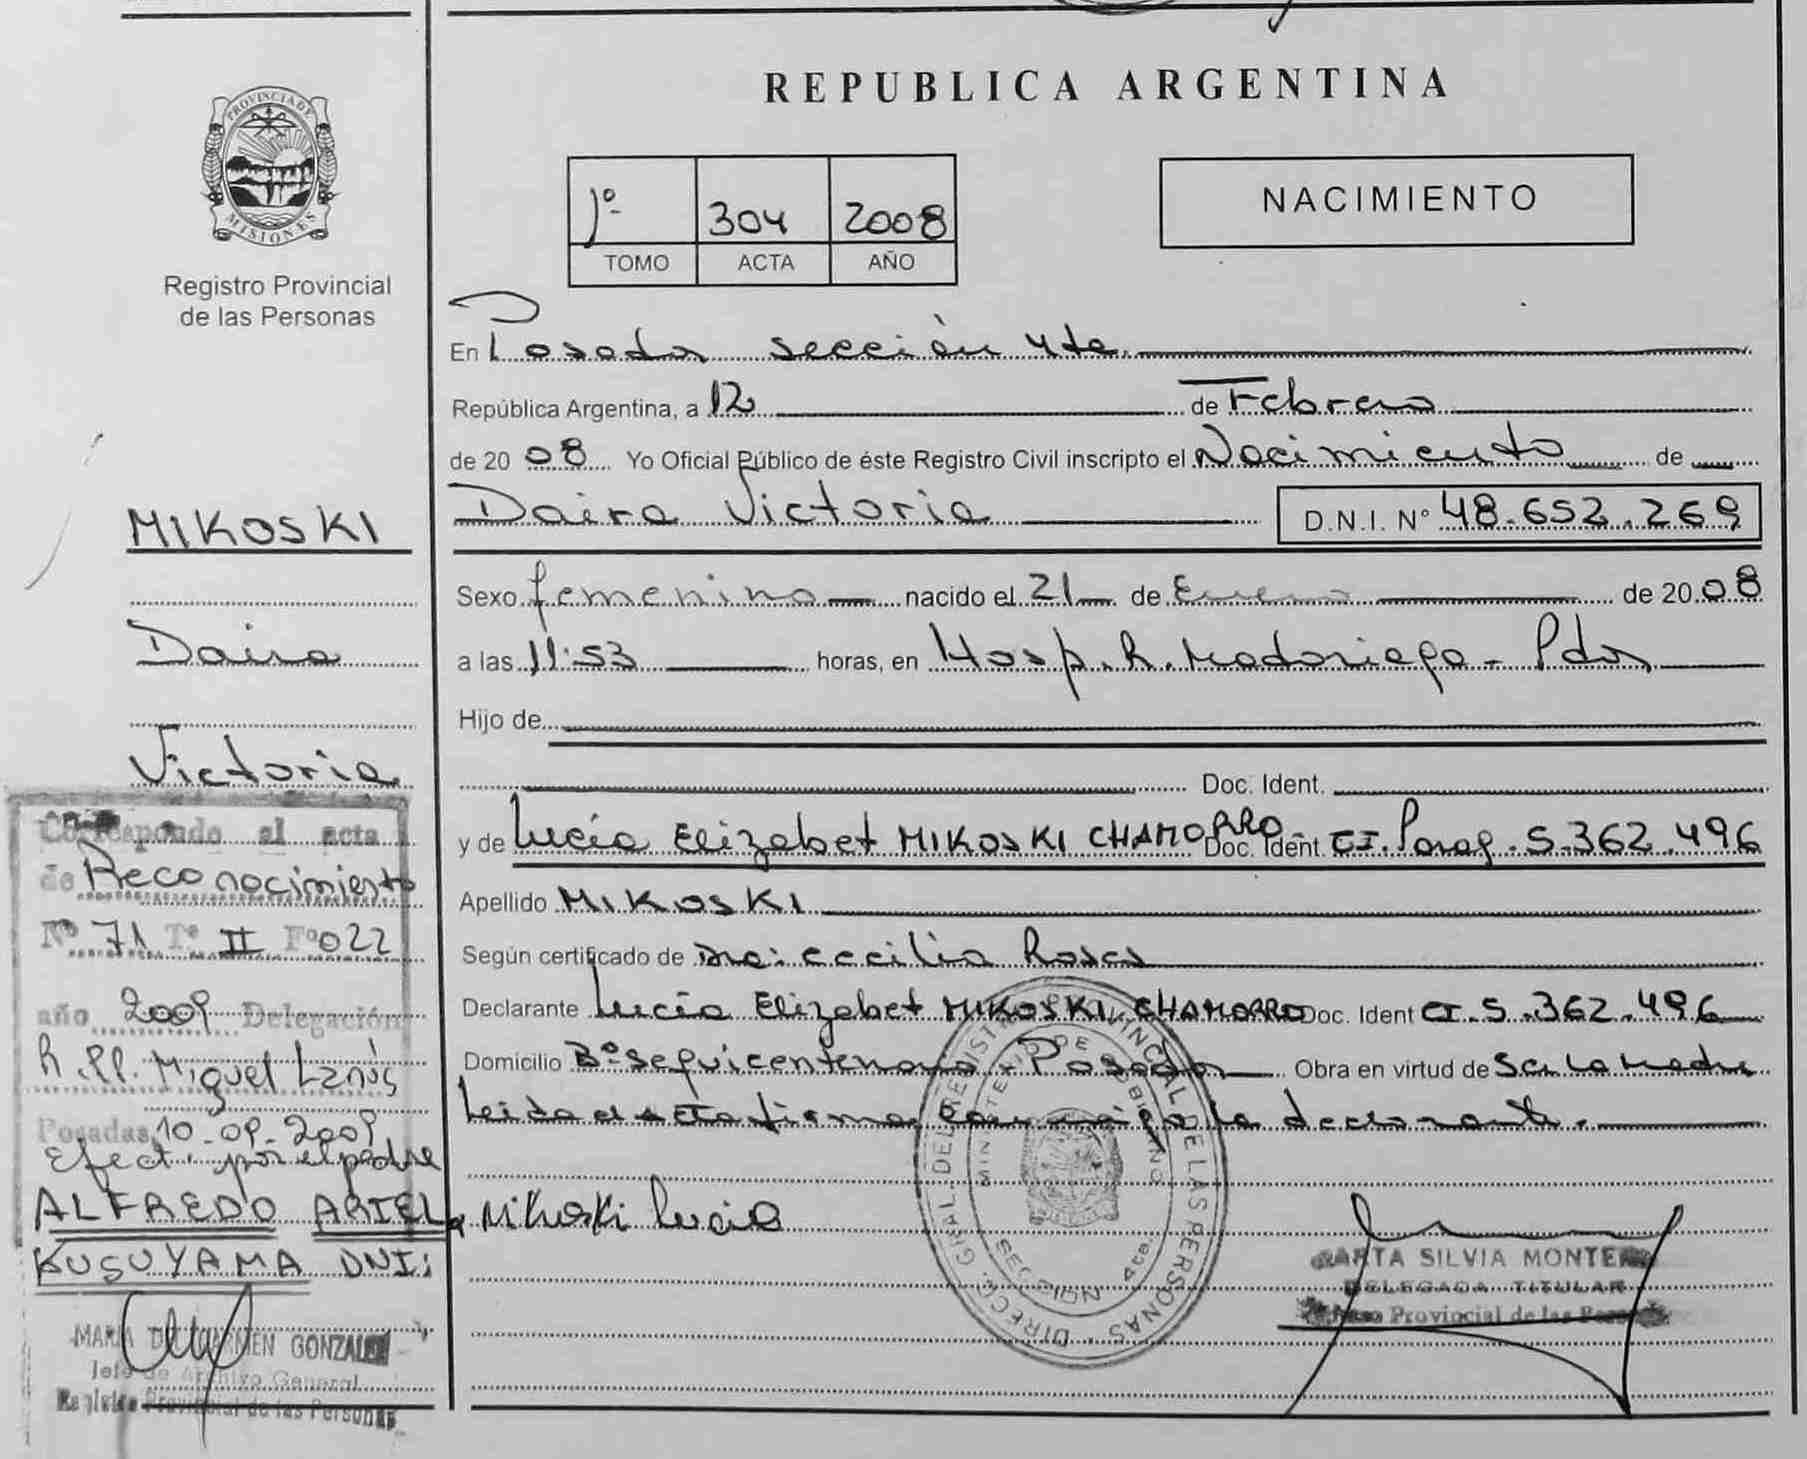 REPUBLICA ARGENTINA
PROVINCIA DE
MISIONES
Registro Provincial
de las Personas
1º 304 2008
TOMO ACTA AÑO
NACIMIENTO
En Posadas sección 4ta.
República Argentina, a 12 de Febrero
de 20 08 Yo Oficial Público de éste Registro Civil inscripto el Nacimiento de
Daira Victoria D.N.I. Nº 48.652.269
Sexo femenino nacido el 21 de Enero de 20 08
a las 11:53 horas, en Hosp. R. Madariaga - Pdas
Hijo de
Doc. Ident.
y de Lucía Elizabet MIKOSKI CHAMORRO Doc. Ident CI. Parag. 5.362.496
Apellido MIKOSKI
Según certificado de Dra: Cecilia Rosas
Declarante Lucía Elizabet MIKOSKI CHAMORRO Doc. Ident CI. 5.362.496
Domicilio Bº Sesquicentenario - Posadas Obra en virtud de Ser la Madre
Leida el acta firma conmigo la declarante.
Mikoski Lucia
DIRECC. GRAL. DEL REGISTRO PROVINCIAL DE LAS PERSONAS
MINISTERIO DE GOBIERNO
SECCION 4ta
SILVIA
DELEGADA TITULAR
Provincial de las
MIKOSKI
Daira
Victoria
Correspondo al acta
de Reconocimiento
Nº 71 Tº II Fº 022
año 2009 Delegación
R.P.P. Miguel Lanús
Posadas 10-09-2009
Efect. por el padre
ALFREDO ARIEL
KUSUYAMA DNI:
MARIA DEL CARMEN GONZALEZ
Jefe de Archivo General
Registro Provincial de las Personas